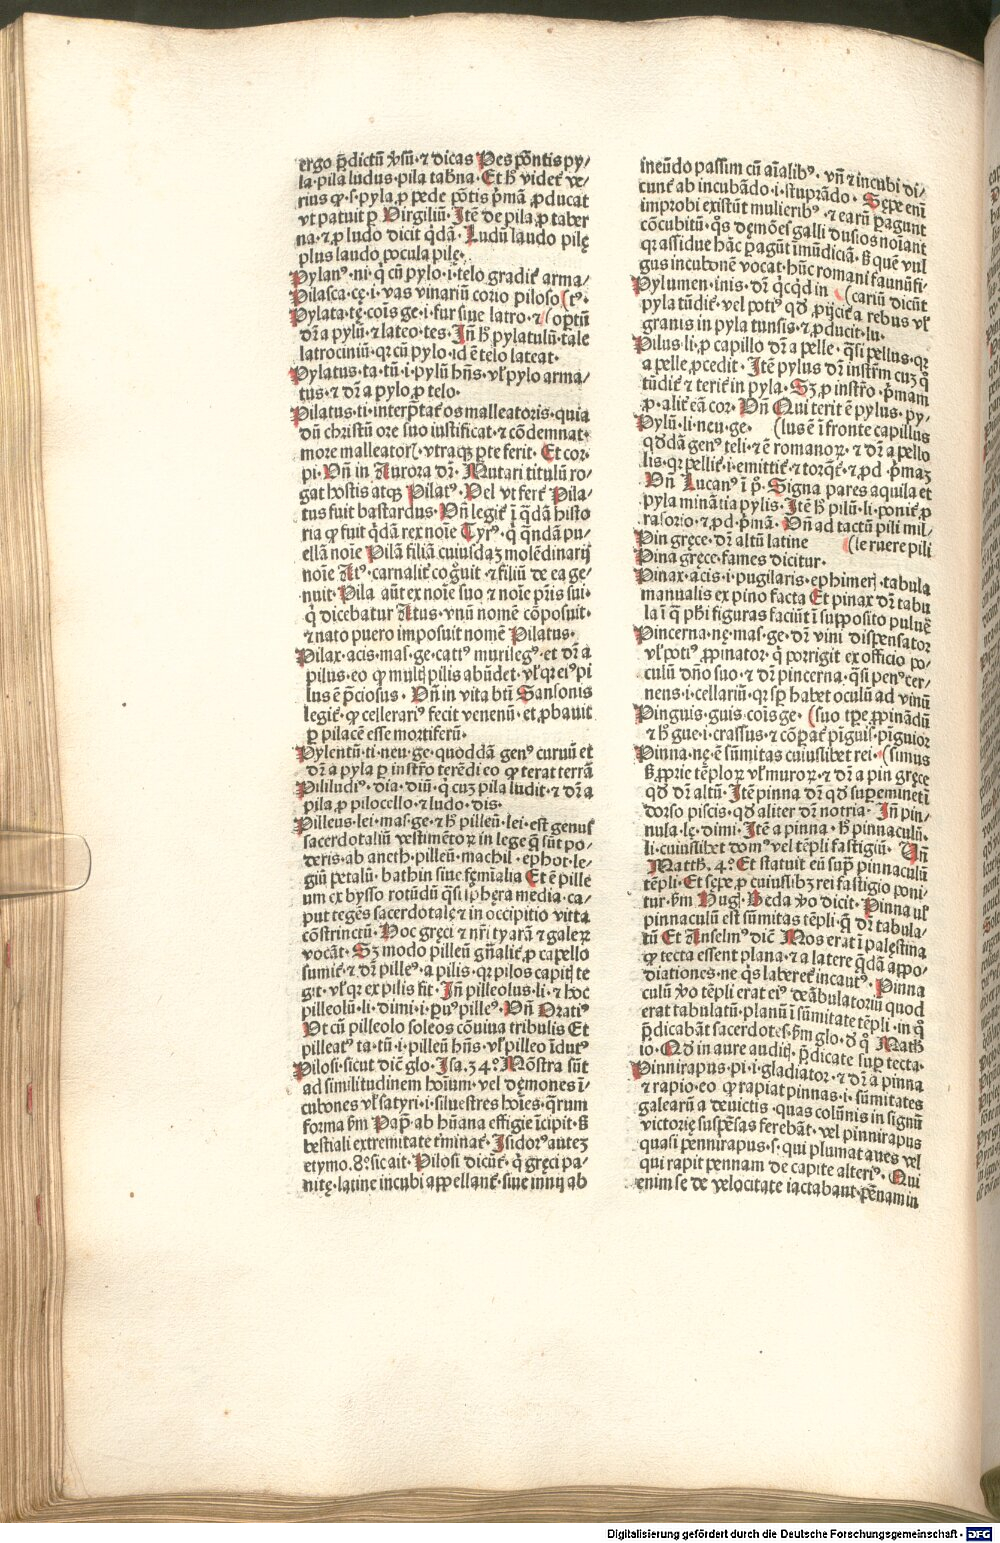 ergo p̄dictū ꝟsū· ⁊ dicas Pes pōntis py/
la· pila ludus· pila tab̄na· Et ħ videt̄ ve/
rius ꝙ· s· pyla, ꝓ pede pōtis p̄mā ꝓducat
vt patuit ꝑ Virgiliū· Itē de pila, ꝓ taber
na· ⁊ ꝓ ludo dicit q̇dā· Ludū laudo pilę
plus laudo pocula pilę·
Pylanꝰ· ni· q̇ cū pylo· i· telo gradit̄ arma/
Pilasca· cę· i· vas vinariū corio piloso (tꝰ·
Pylata· tę· cōis ge· i· fur siue latro· ⁊ (optū
dr̄ a pylū· ⁊ lateo· tes· Jn̄ ħ pylatulū· tale
latrociniū· qꝛ cū pylo· id ē telo lateat·
Pylatus· ta· tū· i· pylū hn̄s· vł pylo arma/
tus· ⁊ dr̄ a pylo, ꝓ telo·
Pilatus· ti· interp̄tat̄ os malleatoris· quia
dn̄ christū ore suo iustificat· ⁊ cōdemnat·
more malleatoꝝ· vtraqꝫ pte ferit· Et cor·
pi· Vn̄ in Aurora dr̄· Mutari titulū ro/
gat hostis atqꝫ Pilatꝰ· Vel vt fert̄ Pila/
tus fuit bastardus· Vn̄ legit̄ ī q̄dā histo
ria ꝙ fuit q̇dā rex noīe Tyrꝰ· q̇ q̄ndā pu/
ellā noīe Pilā filiā cuiusdaꝫ molēdinarij
noīe Atꝰ· carnalit̄ cog̊uit· ⁊ filiū de ea ge/
nuit· Pila aūt ex noīe suo ⁊ noīe pr̄is sui·
q̇ dicebatur Atus· vnū nomē cōposuit·
⁊ nato puero imposuit nomē Pilatus·
Pilax· acis· mas· ge· catꝰ murilegꝰ· et dr̄ a
pilus· eo ꝙ multꝭ pilis abūdet· vł qꝛ eiꝰ pi
lus ē p̄ciosus· Vn̄ in vita bt̄i Sansonis
legit̄· ꝙ cellerariꝰ fecit venenū· et, ꝓbauit
ꝑ pilacē esse mortiferū·
Pylentū· ti· neu· ge· quoddā genꝰ curuū et
dr̄ a pyla ꝑ instr̄o terēdi eo ꝙ terat terrā
Pililudiꝰ· dia· diū· q̇ cuꝫ pila ludit· ⁊ dr̄ a
pila, ꝓ pilocello· ⁊ ludo· dis·
Pilleus· lei· mas· ge· ⁊ ħ pilleū· lei· est genus
sacerdotaliū vestimētoꝝ in lege q̄ sūt po/
deris· ab aneth· pilleū· machil· ephot· le/
giū petalū· bathin siue fęmīalia Et ē pille
um ex bysso rotūdū q̄si sphęra media· ca/
put tegēs sacerdotalę ⁊ in occipitio vitta
cōstrinctū· Hoc gręci ⁊ nr̄i tyarā ⁊ galeꝝ
vocāt· Sꝫ modo pilleū gn̄alit̄, ꝓ capello
sumit̄· ⁊ dr̄ pilleꝰ· a pilis· qꝛ pilos capitꝭ te
git· vł qꝛ ex pilis fit· Jn̄ pilleolus· li· ⁊ hoc
pilleolū· li· dimi· i· puꝰ pilleꝰ· Vn̄ Oratiꝰ
Vt cū pilleolo soleos cōuiua tribulis Et
pilleatꝰ ta· tū· i· pilleū hn̄s· vł pilleo īdutꝰ
Pilosi· sicut dicit̄ glo· Isa· 34· Mōstra sūt
ad similitudinem hoīum· vel dęmones ī/
cubones vł satyri· i· siluestres hoīes· q̄rum
forma ẜm Pap̄· ab hūana effigie īcipit· s̄
bestiali extremitate t̄minat̄· Isidorꝰ auteꝫ
etymo. 8· sic ait· Pilosi dicūt̄· q̇ gręci pa/
nitę· latine incubi appellant̄· siue inuij ab
ineūdo passim cū aīalibꝰ· vn̄ ⁊ incubi di/
cunt̄ ab incubādo· i· stuprādo· Sępe enī
improbi existūt mulieribꝰ· ⁊ earū ꝑagunt
cōcubitū· q̇s dęmōes galli dusios noīant
qꝛ assidue hāc ꝑagūt īmūdiciā· s̄ quē vul
gus incubonē vocat· hūc romani faunū fi/
Pylumen· inis· dr̄ q̇cqd in (cariū dicūt
pyla tūdit̄· vel potiꝰ qđ ꝓijcit̄ a rebus vł
granis in pyla tunsis· ⁊ ꝓducit· lu·
Pilus· li, ꝓ capillo dr̄ a pelle· q̄si pellus· qꝛ
a pelle, ꝓcedit· Itē pylus dr̄ instr̄m cuꝫ q̇
tūdit̄ ⁊ terit̄ in pyla· Sꝫ, ꝓ instr̄o· p̄mam
ꝓ· alit̄ eā cor· Vn̄ Qui terit ē pylus· py/
Pylū· li· neu· ge· (lus ē ī fronte capillus
qđdā genꝰ teli· ⁊ ē romanoꝝ· ⁊ dr̄ a pello
lis· qꝛ pellit̄· i· emittit̄ ⁊ torq̄t̄· ⁊ ꝓd· p̄maꝫ
Vn̄ Lucanꝰ ī p̄· Signa pares aquila et
pyla minātia pylis· Itē ħ pilū· li· ponit̄, ꝓ
rasorio· ⁊ ꝓd· p̄mā· Vn̄ ad tactū pili mil/
Pin gręce· dr̄ altū latine (le ruere pili
Pina gręce· fames dicitur·
Pinax· acis· i· pugilaris· ephimerꝭ· tabula
manualis ex pino facta Et pinax dr̄ tabu
la ī q̄ phi figuras faciūt ī supposito puluē
Pincerna· nę· mas· ge· dr̄ vini dispensator
vł potiꝰ, ꝓpinator· q̇ porrigit ex officio po/
culū dn̄o suo· ⁊ dr̄ pincerna· q̄si penꝰ cer/
nens· i· cellariū· qꝛ sꝑ habet oculū ad vinū
Pinguis· guis· cōis ge· (suo tꝑe, ꝓpinādū
⁊ ħ gue· i· crassus· ⁊ cōpat̄ pīguis· pīguior
Pinna· nę· ē sūmitas cuiuslibet rei· (simus
s̄ ꝓprie tēploꝝ vł muroꝝ· ⁊ dr̄ a pin gręce
qđ dr̄ altū· Itē pinna dr̄ qđ supeminet ī
dorso piscis· qđ aliter dr̄ notria· Jn̄ pin/
nula· lę· dimi· Itē a pinna· ħ pinnaculū·
li· cuiuslibet domꝰ vel tēpli fastigiū· Vn̄
Matth· 4· Et statuit eū sup̄ pinnaculū
tēpli· Et sępe, ꝓ cuiuslibꝫ rei fastigio poni/
tur· ẜm Hug· Beda ꝟo dicit· Pinna vł
pinnaculū est sūmitas tēpli· q̄ dr̄ tabula/
tū Et Anselmꝰ dicit̄ Mos erat ī palęstina
ꝙ tecta essent plana· ⁊ a latere q̄dā appo/
diationes· ne q̇s laberet̄ incautꝰ· Pinna
culū ꝟo tēpli erat eiꝰ deābulatoriū quod
erat tabulatū· planū ī sūmitate tēpli· in q̊
p̄dicabāt sacerdotes· ẜm glo· d̄ q̊ Math
io· Qđ in aure auditꝭ· p̄dicate sup̄ tecta·
Pinnirapus· pi· i· gladiator· ⁊ dr̄ a pinna
⁊ rapio· eo ꝙ rapiat pinnas· i· sūmitates
galearū a deuictis· quas colūnis in signū
victorię suspēsas ferebāt· vel pinnirapus
quasi pennirapus· s· qui plumat aues vel
qui rapit pennam de capite alteriꝰ· Qui
enim se de velocitate iactabant· pēnam in
Digitalisierung gefördert durch die Deutsche Forschungsgemeinschaft - DFG